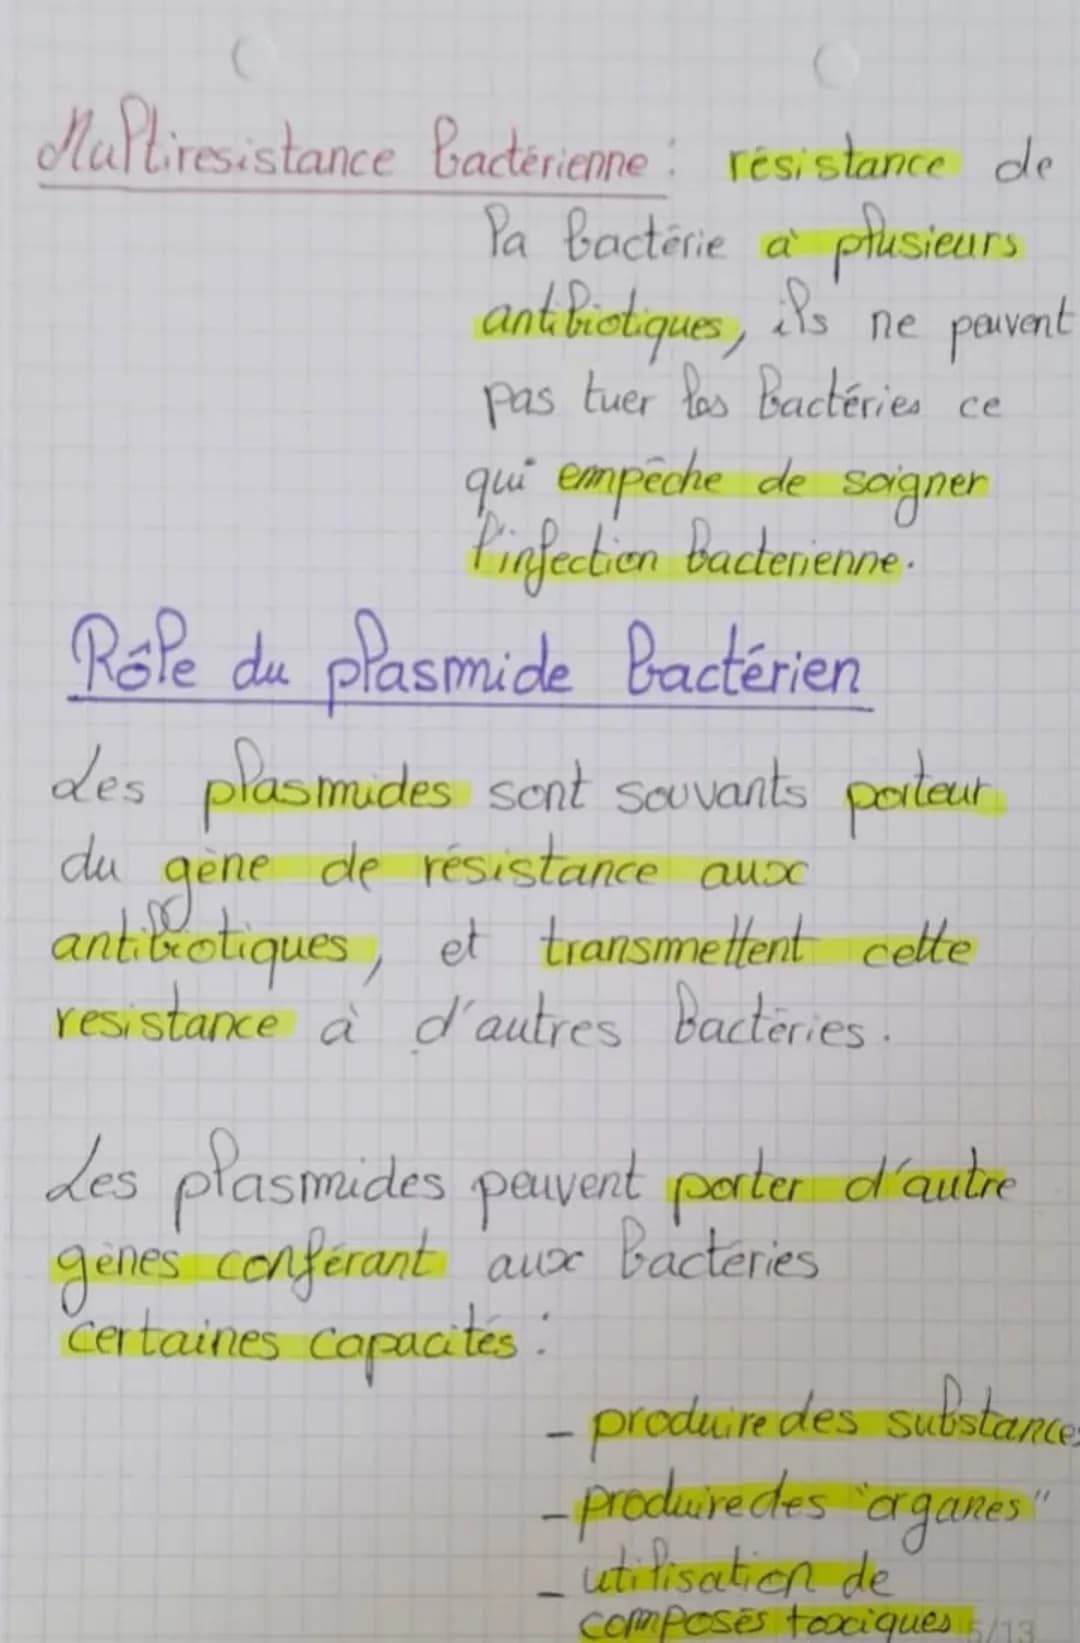 Multiresistance bactérienne : résistance de
la bactérie à plusieurs
antibiotiques, ils ne peuvent
pas tuer les bactéries ce
qui empêche de soigner
l'infection bacterienne.
Rôle du plasmide bactérien
Les plasmides sont souvants porteur
du gène de résistance aux
antibiotiques, et transmettent cette
resistance à d'autres bactéries.
Les plasmides peuvent porter d'autre
gènes conférant aux bactéries
certaines capacités :
- produire des substances
- produire des "organes"
- utilisation de
composés toxiques
5/13